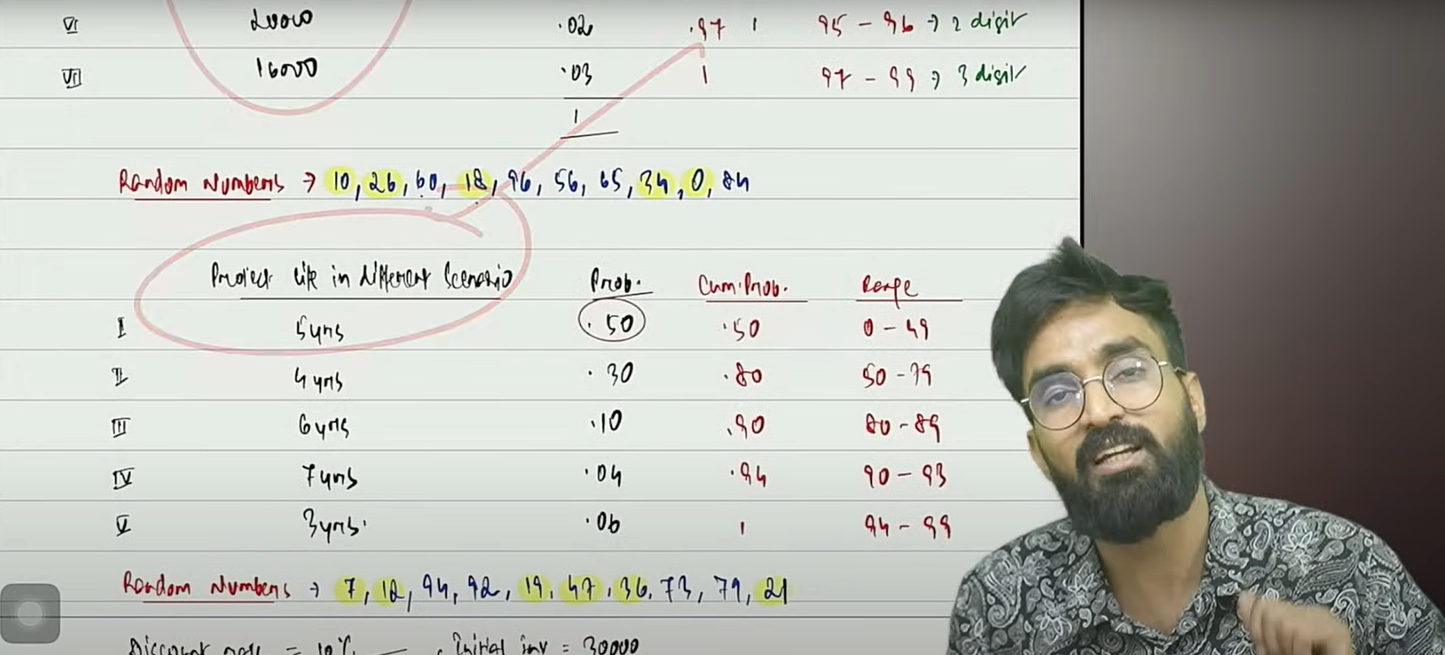 VI 20000 .02 .97 1 95 - 96 → 2 digit
VII 16000 .03 1 97 - 99 → 3 digit
1
Random Numbers → 10, 26, 60, 18, 96, 56, 65, 34, 0, 84
Project life in different Scenario Prob. Cum. Prob. Range
I 5yrs .50 .50 0 - 49
II 4yrs .30 .80 50 - 79
III 6yrs .10 .90 80 - 89
IV 7yrs .04 .94 90 - 93
V 3yrs. .06 1 94 - 99
Random Numbers → 7, 12, 94, 92, 19, 47, 36, 73, 79, 21
Discount rate = 10% Initial inv = 30000